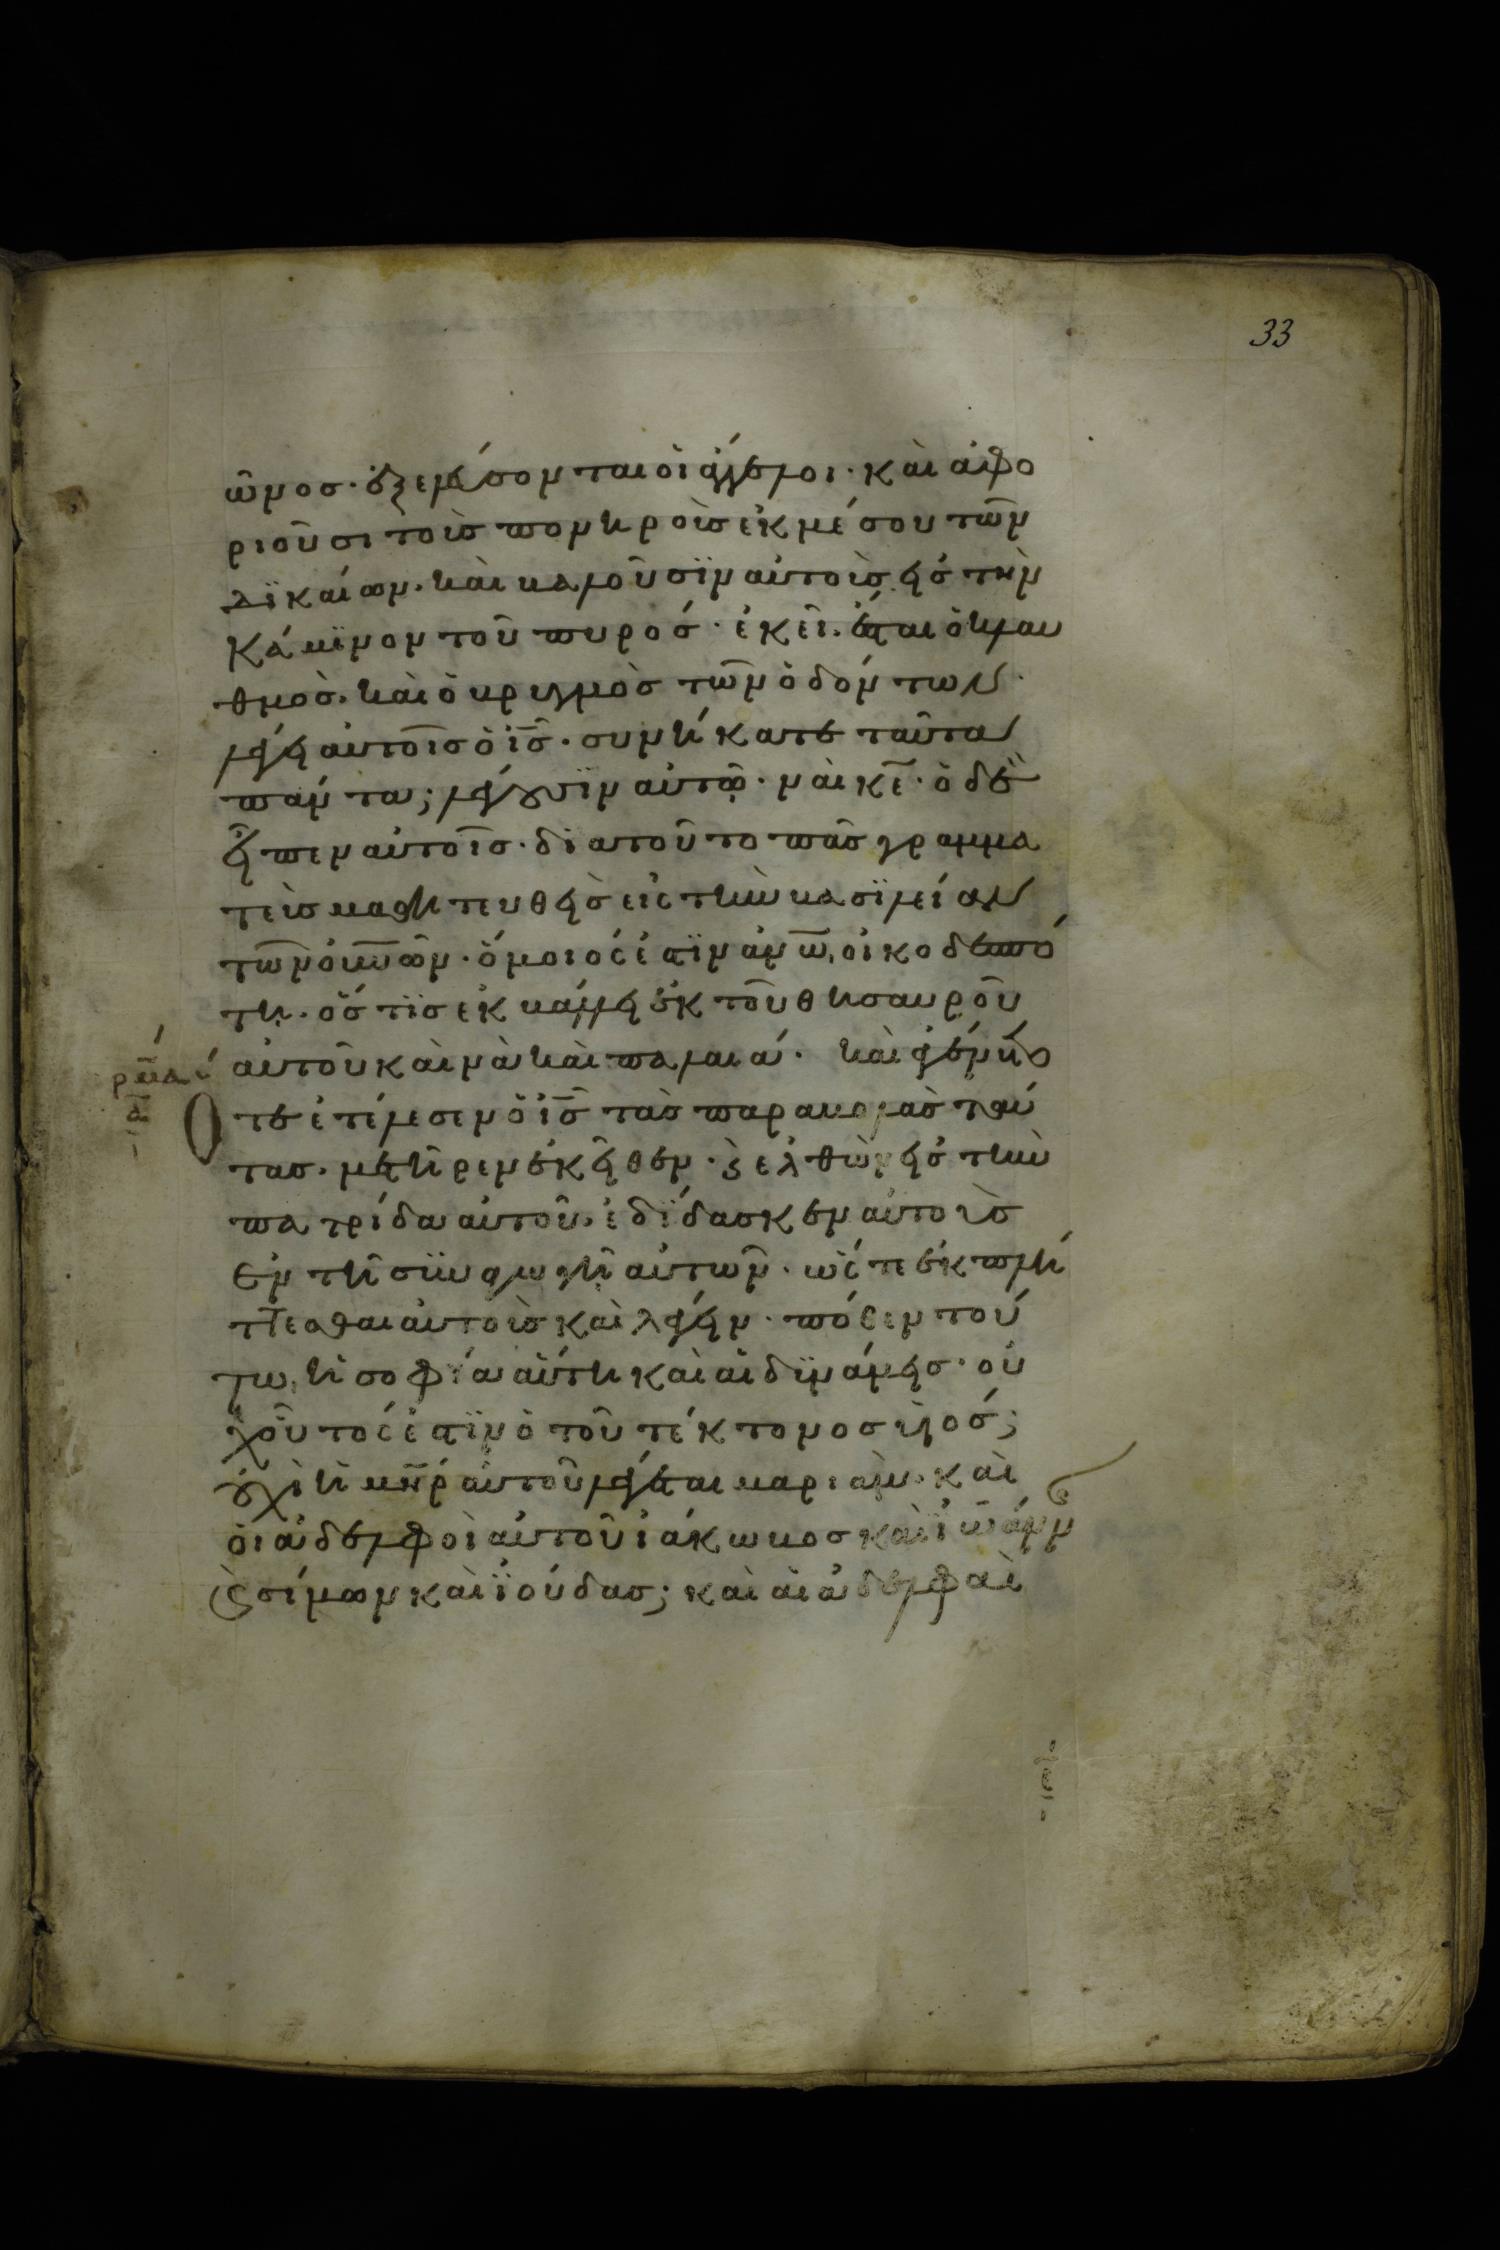 33
ῶνος· ἐξελεύσονται οἱ ἄγγελοι· καὶ ἀφο
ριοῦσι τοὺς πονηροὺς ἐκ μέσου τῶν
δϊκαίων· καὶ βαλοῦσϊν αὐτοὺς εἰς τὴν
κάμϊνον τοῦ πυρός· ἐκεῖ ἔσται ὁ κλαυ
θμὸς· καὶ ὁ βρυγμὸς τῶν ὀδόντων·
λέγει αὐτοῖς ὁ ι̅ς̅· συνήκατε ταῦτα
πάντα; λέγουσϊν αὐτῷ· ναὶ κ̅ε̅· ὁ δὲ
εἶπεν αὐτοῖς· διατοῦτο πᾶς γραμμα
τεὺς μαθητευθεὶς εἰς τὴν βασϊλείαν
τῶν ο̅υ̅ν̅ῶν· ὅμοιός ἐστϊν ἀ̅ν̅ω̅ οἰκοδεσπό
τῃ· ὅστϊς ἐκβάλλει ἐκ τοῦ θησαυροῦ
αὐτοῦ καινὰ καὶ παλαιά· καὶ ἐγένετο
ὅτε ἐτέλεσεν ὁ ι̅ς̅ τὰς παραβολὰς ταύ
τας· μετῆρεν ἐκεῖθεν· καὶ ἐλθὼν εἰς τὴν
πατρίδα αὐτοῦ· ἐδίδασκεν αὐτοὺς
ἐν τῇ συναγωγῇ αὐτῶν· ὥστε ἐκπλή
ττεσθαι αὐτοὺς καὶ λέγειν· πόθεν τού
τῳ ἡ σοφία αὕτη καὶ αἱ δϋνάμεις· οὐ
χ οὗτός ἐστϊν ὁ τοῦ τέκτονος υἱός;
οὐχὶ ἡ μ̅η̅ρ̅ αὐτοῦ λέγεται μαριὰμ· καὶ
οἱ ἀδελφοὶ αὐτοῦ ἰάκωβος καὶ ἰωάνν
καὶ σίμων καὶ ϊούδας; καὶ αἱ ἀδελφαὶ